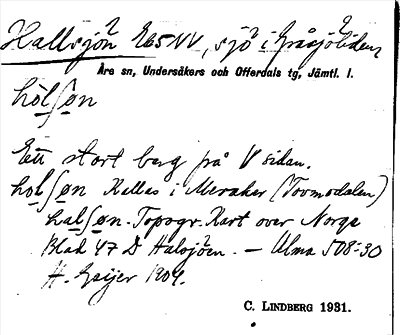 Hallsjön E65NV, sjö i Gråsjöliden
Åre sn, Undersåkers och Offerdals tg, Jämtl. l.
hòlʃøn
Ett stort berg på V sidan.
holʃøn Kallas i Meraker (Tovmodalen)
halʃøn. Topogr. Kart over Norge
Blad 47 D Halsjöen. – Ulma 508:30
H. Geijer 1909.
C. LINDBERG 1931.